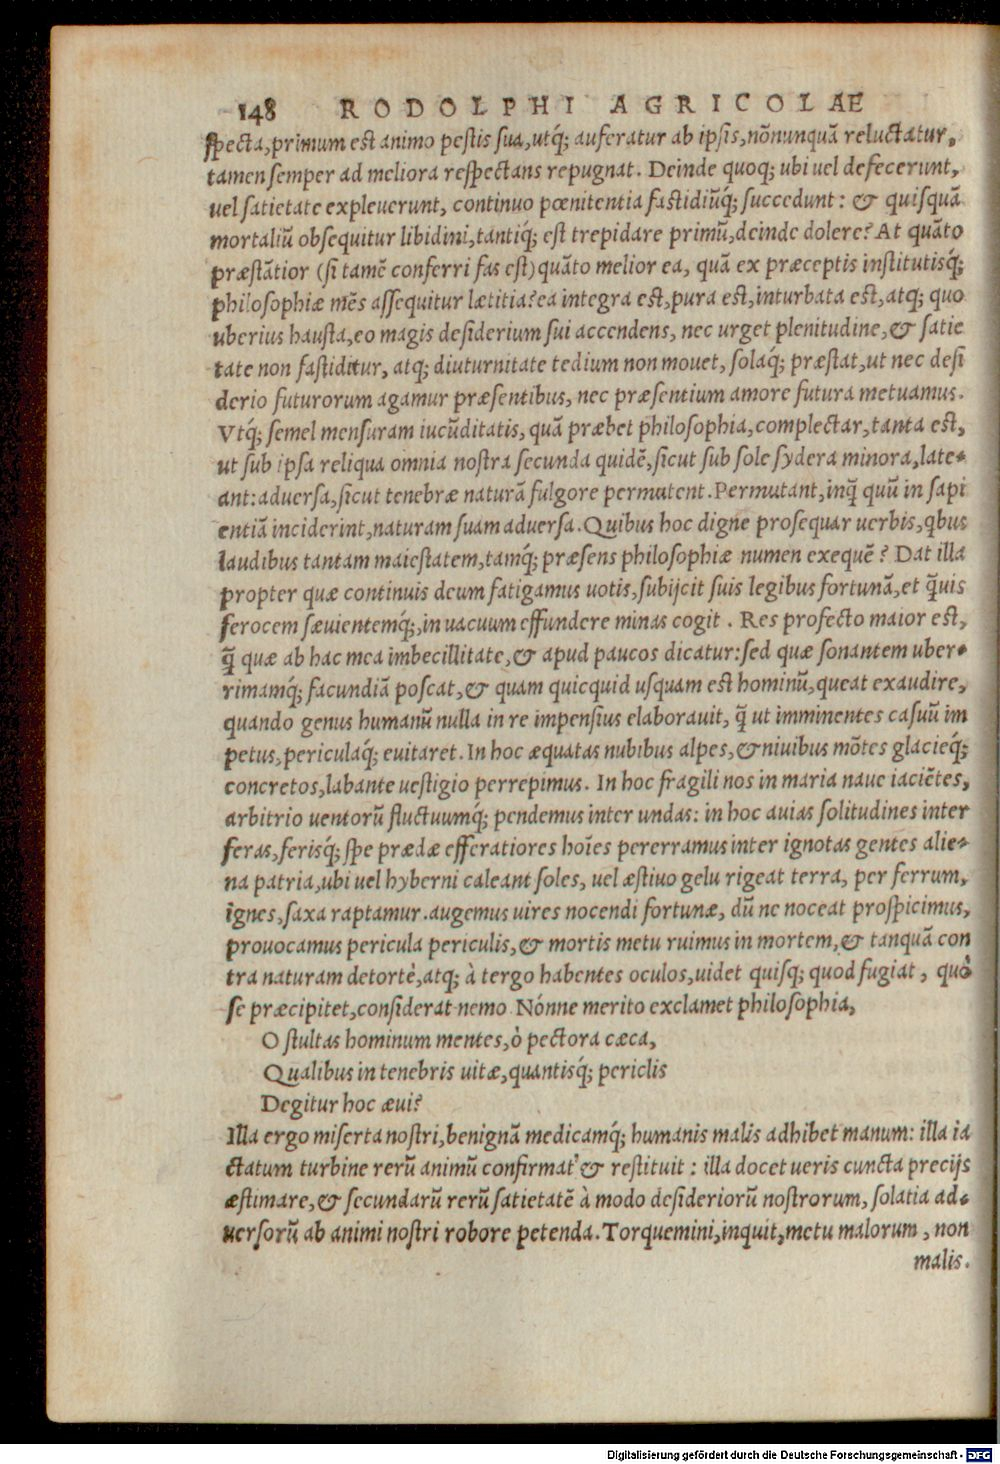 148 RODOLPHI AGRICOLAE
specta, primum est animo pestis sua, utq́; auferatur ab ipsis, nõnunquã reluctatur,
tamen semper ad meliora respectans repugnat. Deinde quoq; ubi uel defecerunt,
uel satietate expleuerunt, continuo pœnitentia fastidiũq́; succedunt: & quisquã
mortaliũ obsequitur libidini, tantiq́; est trepidare primũ, deinde dolere? At quãto
præstãtior (si tamẽ conferri fas est) quãto melior ea, quã ex præceptis institutisq́;
philosophiæ mẽs assequitur lætitia? ea integra est, pura est, inturbata est, atq; quo
uberius hausta, eo magis desiderium sui accendens, nec urget plenitudine, & satie
tate non fastiditur, atq; diuturnitate tedium non mouet, solaq́; præstat, ut nec desi
derio futurorum agamur præsentibus, nec præsentium amore futura metuamus.
Vtq́; semel mensuram iucũditatis, quã præbet philosophia, complectar, tanta est,
ut sub ipsa reliqua omnia nostra secunda quidẽ, sicut sub sole sydera minora, late-
ant: aduersa, sicut tenebræ naturã fulgore permutent. Permutant, inq̃ quũ in sapi
entiã inciderint, naturam suam aduersa. Quibus hoc digne prosequar uerbis, qbus
laudibus tantam maiestatem, tamq́; præsens philosophiæ numen exequẽ? Dat illa
propter quæ continuis deum fatigamus uotis, subijcit suis legibus fortunã, et q̃uis
ferocem sæuientemq́;, in uacuum effundere minas cogit. Res profecto maior est,
q̃ quæ ab hac mea imbecillitate, & apud paucos dicatur: sed quæ sonantem uber-
rimamq́; facundiã poscat, & quam quicquid usquam est hominũ, queat exaudire,
quando genus humanũ nulla in re impensius elaborauit, q̃ ut imminentes casuũ im
petus, periculaq́; euitaret. In hoc æquatas nubibus alpes, & niuibus mõtes glacieq́;
concretos, labante uestigio perrepimus. In hoc fragili nos in maria naue iaciẽtes,
arbitrio uentorũ fluctuumq́; pendemus inter undas: in hoc auias solitudines inter
feras, ferisq́; spe prædæ efferatiores hoĩes pererramus inter ignotas gentes alie-
na patria, ubi uel hyberni caleant soles, uel æstiuo gelu rigeat terra, per ferrum,
ignes, saxa raptamur. augemus uires nocendi fortunæ, dũ ne noceat prospicimus,
prouocamus pericula periculis, & mortis metu ruimus in mortem, & tanquã con
tra naturam detortè, atq; à tergo habentes oculos, uidet quisq; quod fugiat, quò
se præcipitet, considerat nemo. Nónne merito exclamet philosophia,
O stultas hominum mentes, ò pectora cæca,
Qualibus in tenebris uitæ, quantisq́; periclis
Degitur hoc æui?
Illa ergo miserta nostri, benignã medicamq́; humanis malis adhibet manum: illa ia
ctatum turbine rerũ animũ confirmat & restituit: illa docet ueris cuncta precijs
æstimare, & secundarũ rerũ satietatẽ à modo desideriorũ nostrorum, solatia ad-
uersorũ ab animi nostri robore petenda. Torquemini, inquit, metu malorum, non
malis.
Digitalisierung gefördert durch die Deutsche Forschungsgemeinschaft - DFG